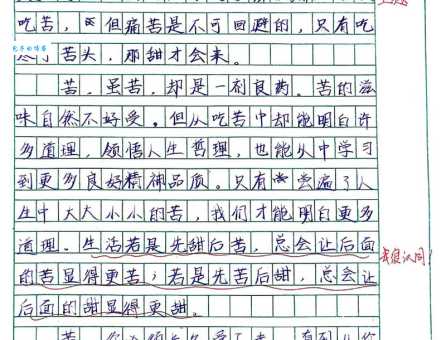 吃苦，但痛苦是不可回避的，只有吃
苦头，那甜才会来。
苦，虽苦，却是一剂良药。苦的滋
味自然不好受。但从吃苦中却能明白许
多道理，领悟人生哲理，也能从中学习
到更多良好精神品质。只有尝遍了人
生中大大小小的苦，我们才能明白更多
道理。生活若是先甜后苦，总会让后面
的苦显得更苦；若是先苦后甜，总会让
后面的甜显得更甜。
我很认同！